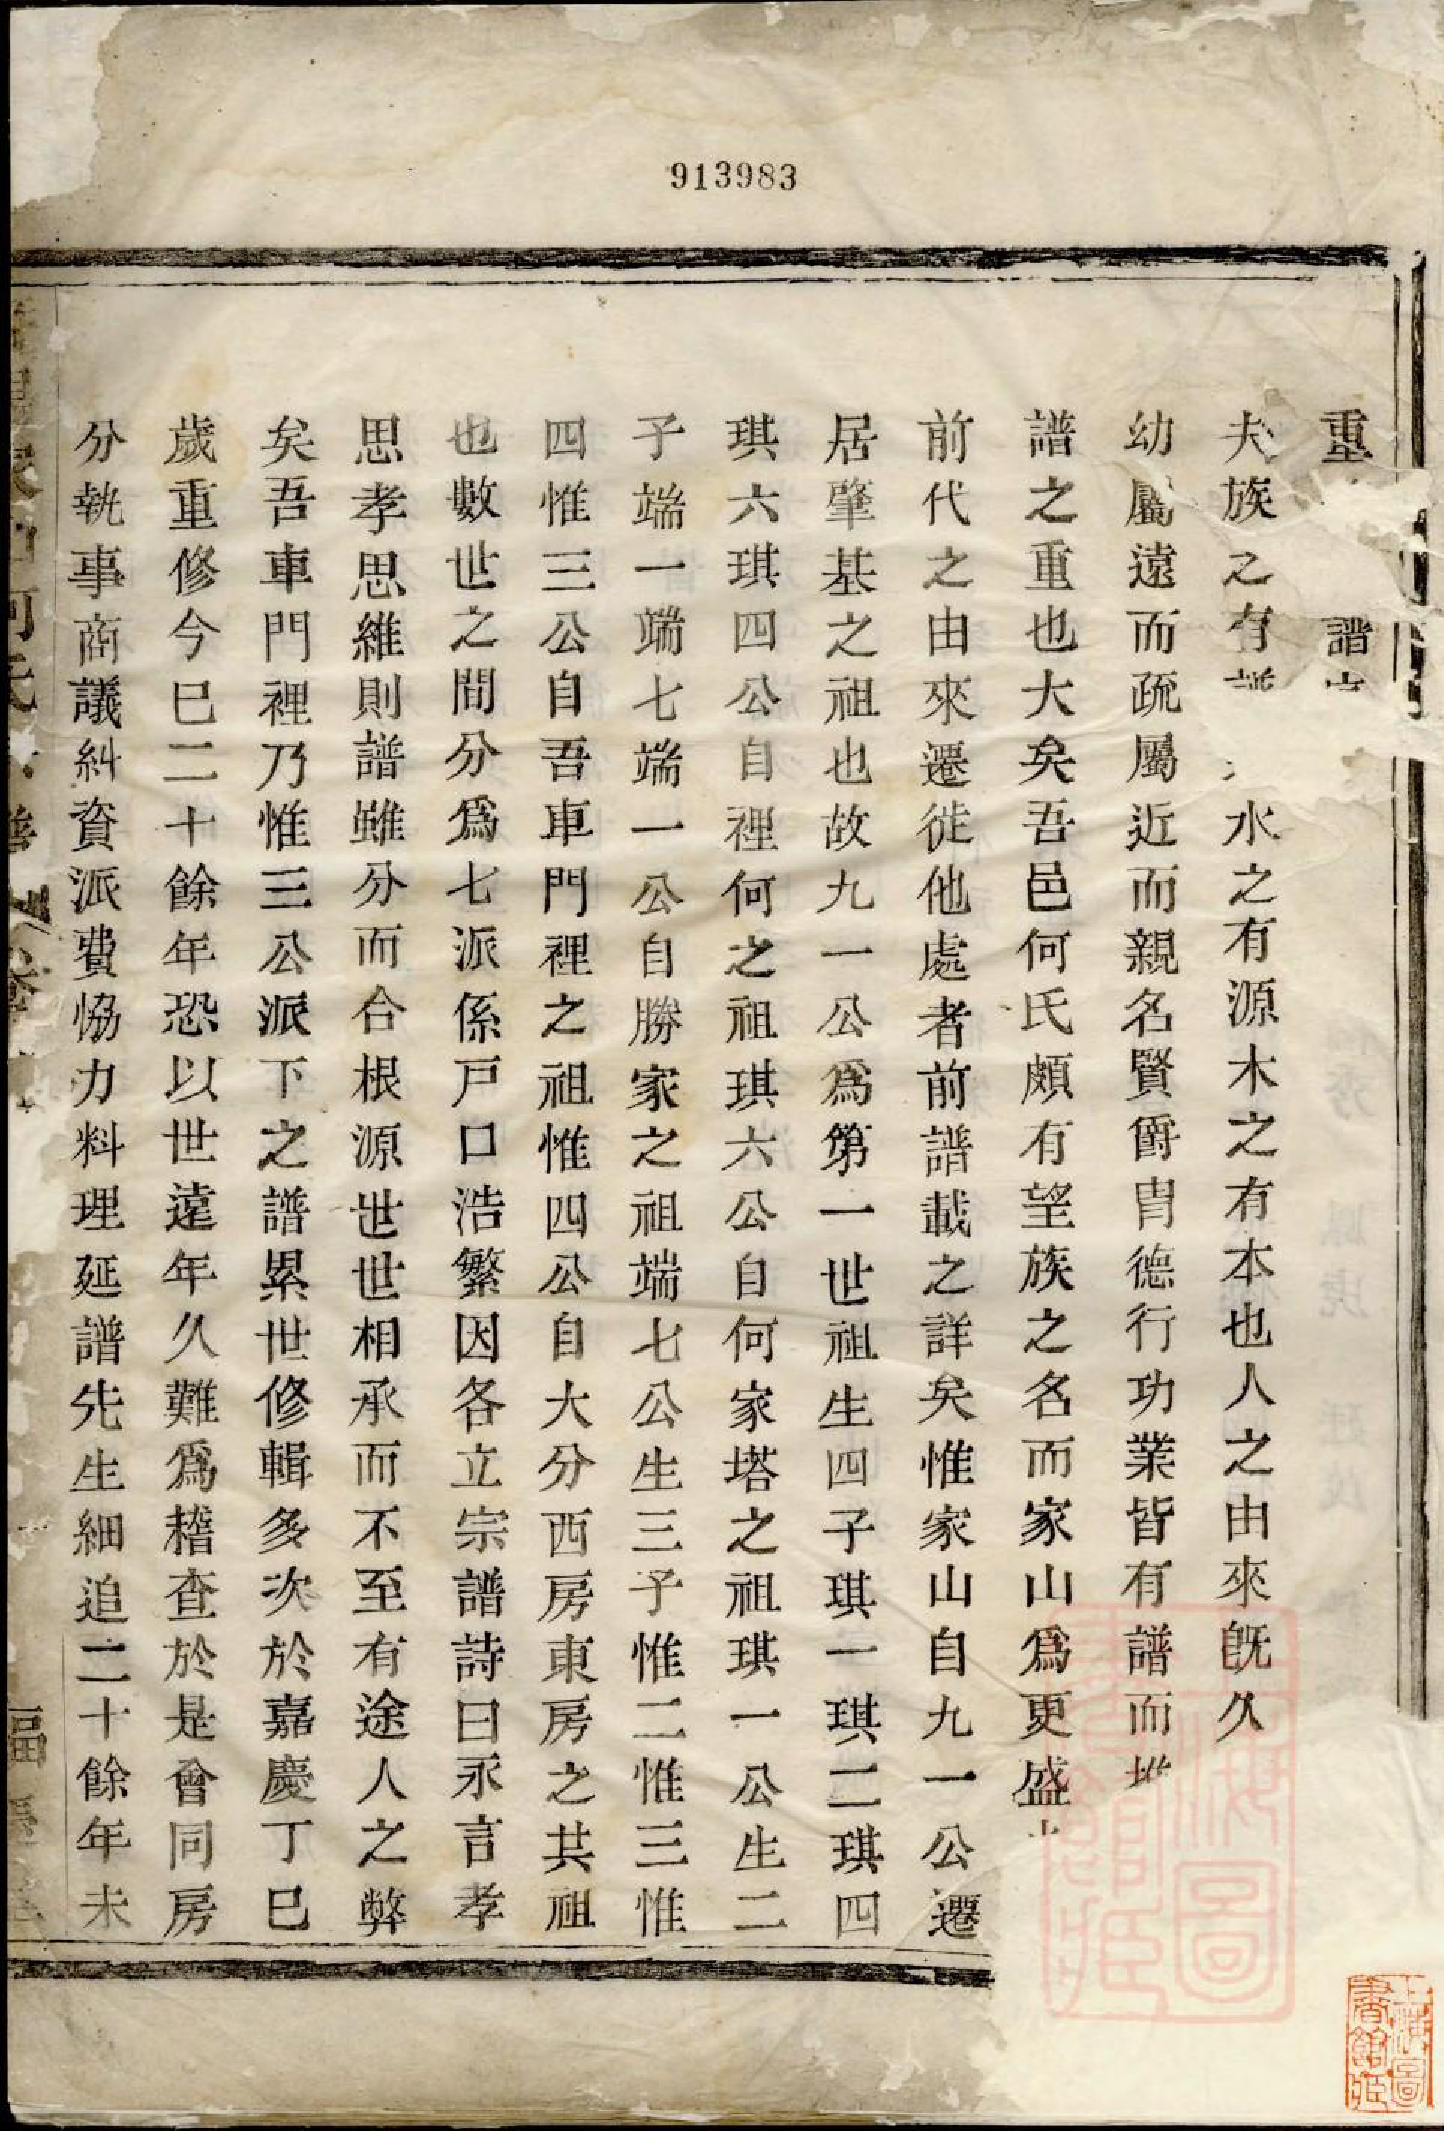 913983
重 譜
夫族之有 水之有源木之有本也人之由來旣久
幼屬遠而疏屬近而親名賢爵胄德行功業皆有譜而
譜之重也大矣吾邑何氏頗有望族之名而家山爲更盛
前代之由來遷徙他處者前譜載之詳矣惟家山自九一公遷
居肇基之祖也故九一公爲第一世祖生四子琪一琪二琪四
琪六琪四公自裡何之祖琪六公自何家塔之祖琪一公生二
子端一端七端一公自勝家之祖端七公生三子惟二惟三惟
四惟三公自吾車門裡之祖惟四公自大分西房東房之共祖
也數世之間分爲七派係戸口浩繁因各立宗譜詩曰永言孝
思孝思維則譜雖分而合根源世世相承而不至有途人之弊
矣吾車門裡乃惟三公派下之譜累世修輯多次於嘉慶丁巳
歲重修今巳二十餘年恐以世遠年久難爲稽查於是會同房
分執事商議糾資派費恊力料理延譜先生細追二十餘年未
上海圖書館藏